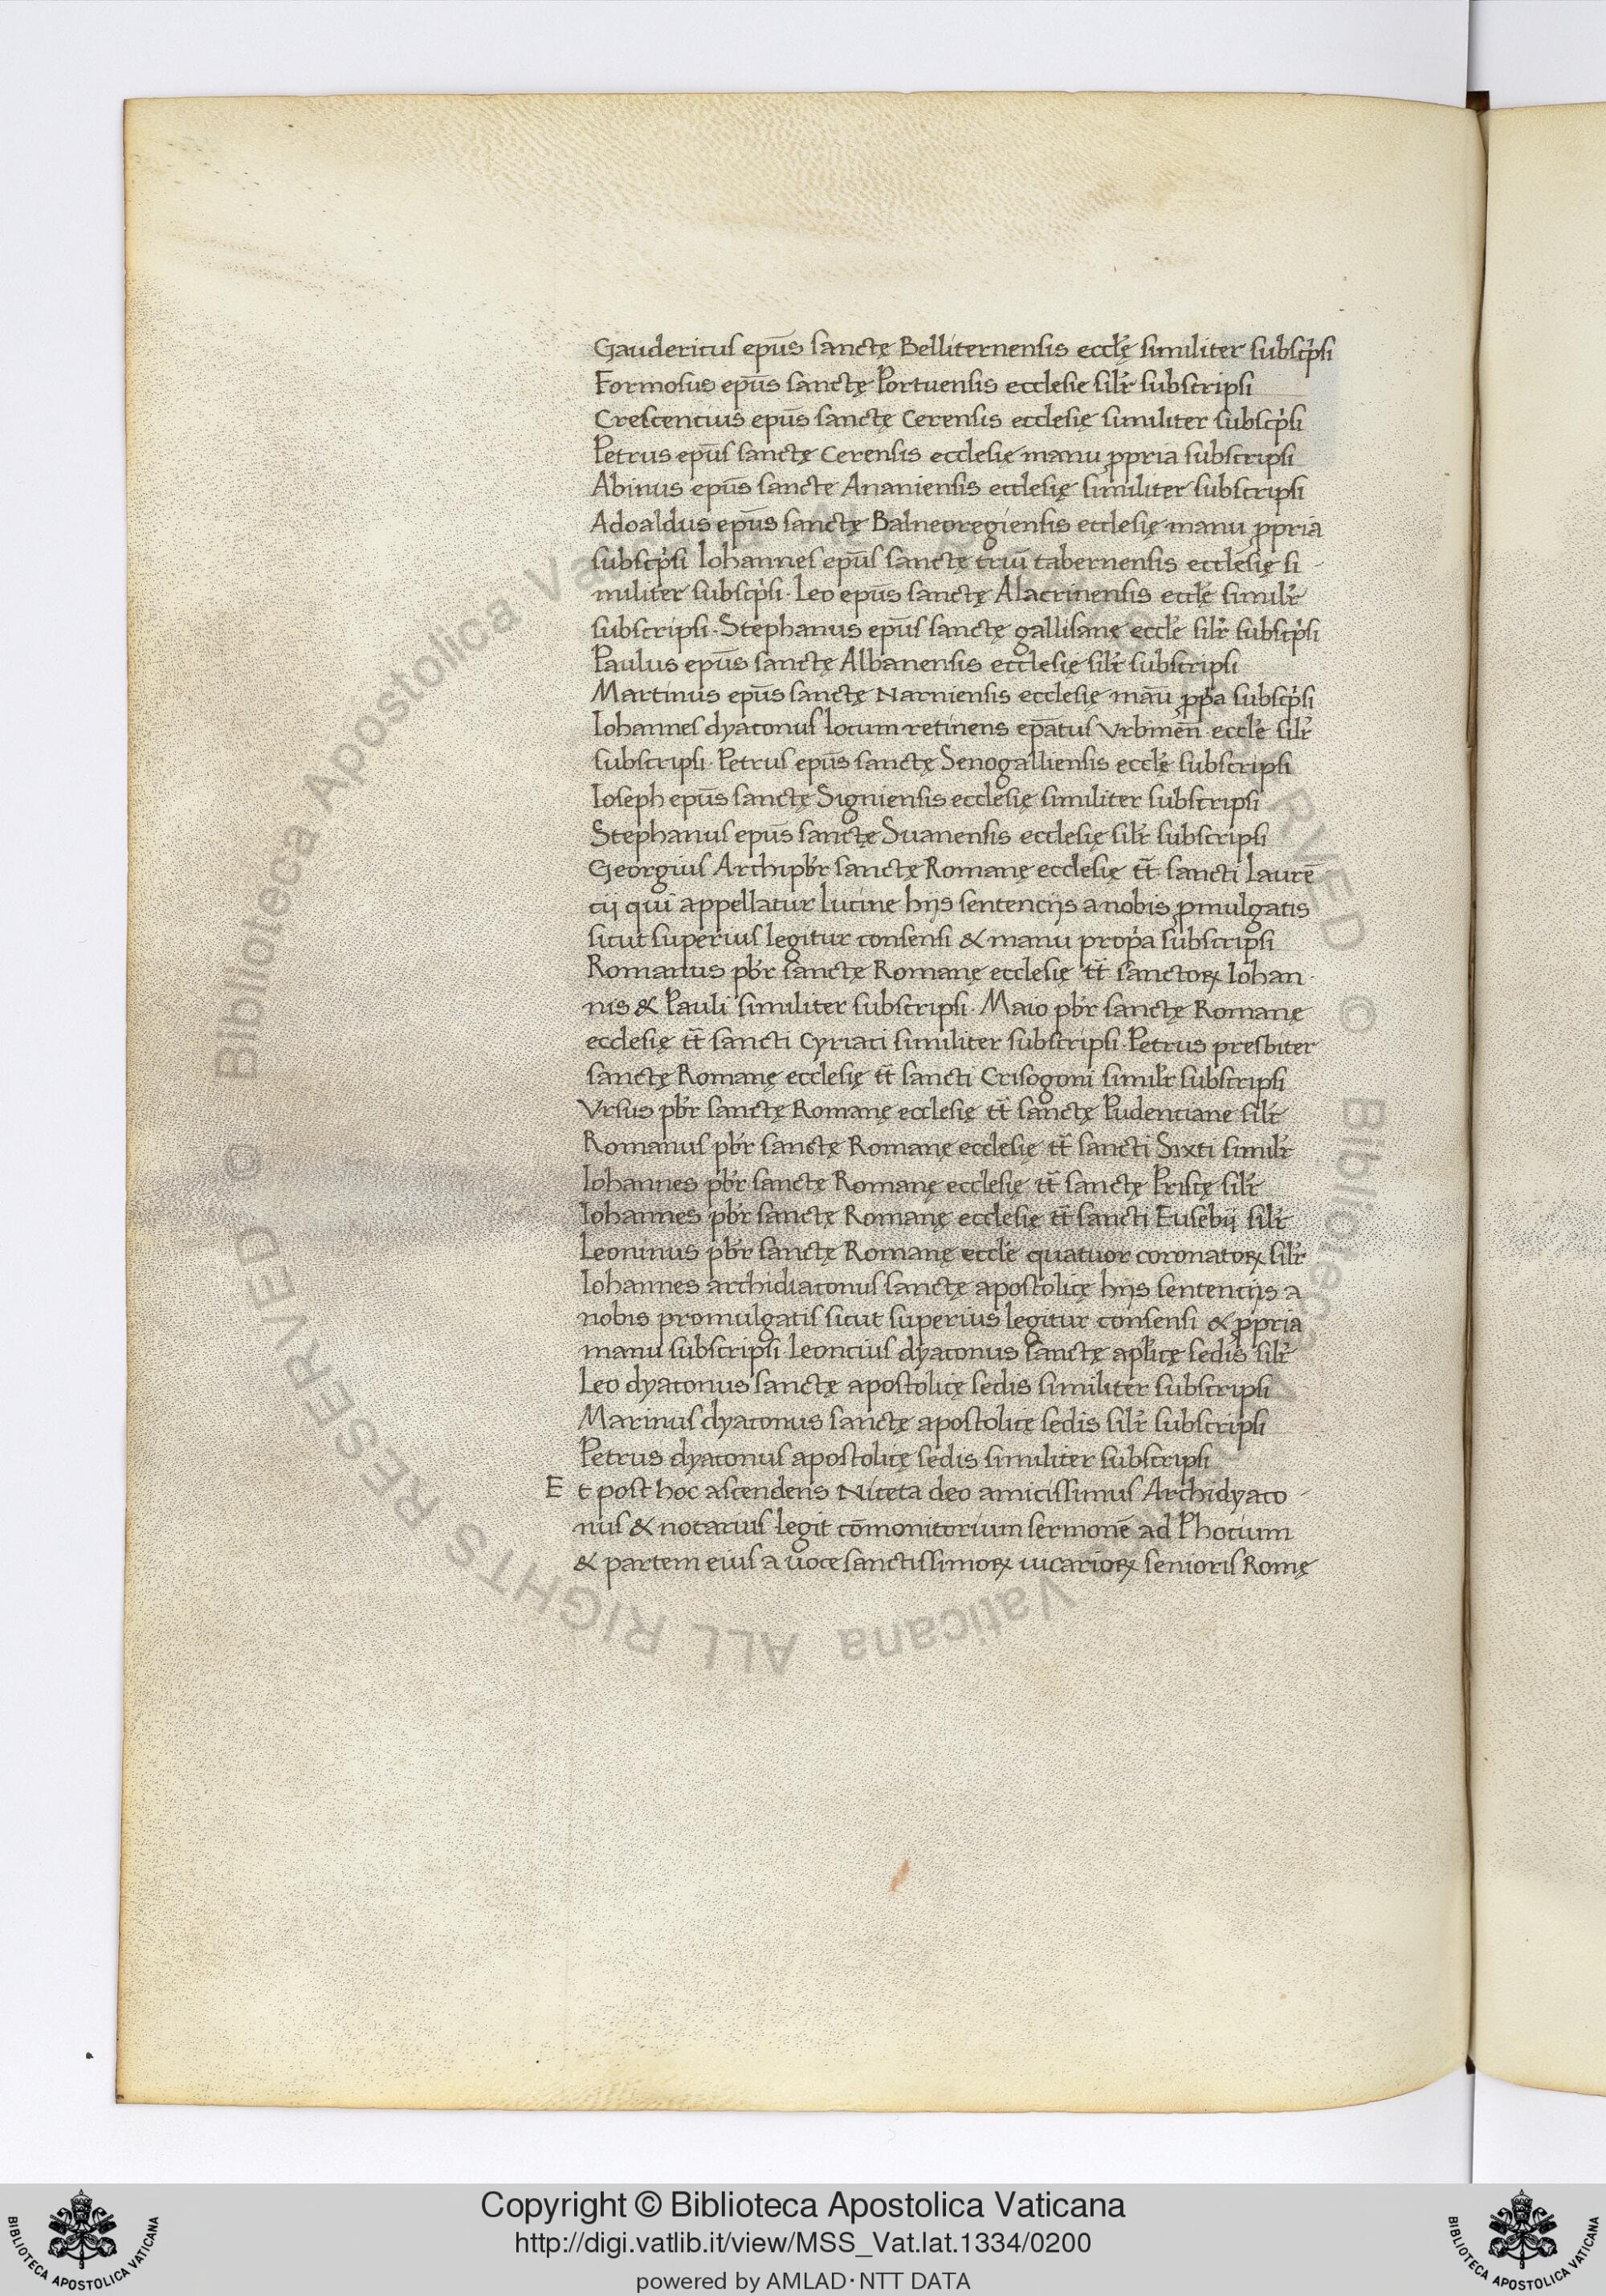 Gaudericus ep̄us sanctę Belliternensis eccl̄ę similiter subsc̓psi
Formosus ep̄us sanctę Portuensis ecclesie sil̓r subscripsi
Crescencius ep̄us sanctę Cerensis ecclesię similiter subsc̓psi
Petrus ep̄us sanctę Cerensis ecclesię manu ꝓpria subscripsi
Abinus ep̄us sancte Ananiensis ecclesię similiter subscripsi
Adoaldus ep̄us sanctę Balneoregiensis ecclesię manu ꝓpria
subsc̓psi Iohannes ep̄us sanctę triū tabernensis ecclesię si-
militer subsc̓psi· Leo ep̄us sanctę Alacrinensis eccl̄ę simil̓r
subscripsi· Stephanus ep̄us sanctę gallisanę eccl̄e sil̓r subsc̓psi
Paulus ep̄us sanctę Albanensis ecclesię sil̓r subscripsi
Martinus ep̄us sanctę Narniensis ecclesię manū ꝓp̓a subsc̓psi
Iohannes dyaconus locum retinens ep̄atus Vrbinen̄ eccl̄e sil̓r
subscripsi· Petrus ep̄us sanctę Senogalliensis eccl̄ę subscripsi
Ioseph ep̄us sanctę Signiensis ecclesię similiter subscripsi
Stephanus ep̄us sanctę Suanensis ecclesię sil̓r subscripsi
Georgius Archipb̓r sanctę Romanę ecclesię tt̄ sancti Laurē
cij qui appellatur lucine hijs sentencijs a nobis ꝓmulgatis
sicut superius legitur consensi & manu prop̓a subscripsi
Romanus pb̓r sanctę Romanę ecclesię tt̄ sanctoꝝ Iohan-
nis & Pauli similiter subscripsi· Maio pb̓r sanctę Romanę
ecclesię tt̄ sancti Cyriaci similiter subscripsi· Petrus presbiter
sanctę Romanę ecclesię tt̄ sancti Crisogoni simil̓r subscripsi
Vrsus pb̓r sanctę Romanę ecclesię tt̄ sanctę Pudenciane sil̓r
Romanus pb̓r sanctę Romanę ecclesię tt̄ sancti Sixti simil̓r
Iohannes pb̓r sanctę Romanę ecclesię tt̄ sanctę Priscę sil̓r
Iohannes pb̓r sanctę Romanę ecclesię tt̄ sancti Eusebij sil̓r
Leoninus pb̓r sanctę Romanę eccl̄e quatuor coronatoꝝ sil̓r
Iohannes archidiaconus sanctę apostolicę hijs sentencijs a
nobis promulgatis sicut superius legitur consensi & ꝓpria
manu subscripsi Leoncius dyaconus sanctę apl̓icę sedis sil̓r
Leo dyaconus sanctę apostolicę sedis similiter subscripsi
Marinus dyaconus sanctę apostolicę sedis sil̓r subscripsi
Petrus dyaconus apostolicę sedis similiter subscripsi
E t post hoc ascendens Niceta deo amicissimus Archidyaco-
nus & notarius legit cōmonitorium sermonē ad Phocium
& partem eius a uoce sanctissimoꝝ uicarioꝝ senioris Romę
© Biblioteca Apostolica Vaticana ALL RIGHTS RESERVED
Copyright © Biblioteca Apostolica Vaticana
http://digi.vatlib.it/view/MSS_Vat.lat.1334/0200
powered by AMLAD·NTT DATA
BIBLIOTECA APOSTOLICA VATICANA
BIBLIOTECA APOSTOLICA VATICANA